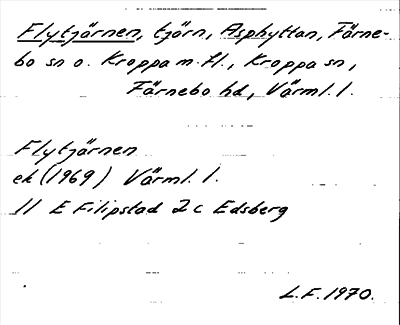 Flytjärnen, tjärn, Asphyttan, Färne-
bo sn o. Kroppa m. fl., Kroppa sn,
Färnebo hd, Värml. l.
Flytjärnen
ek (1969) Värml. l.
11 E Filipstad 2 c Edsberg
L.F. 1970.